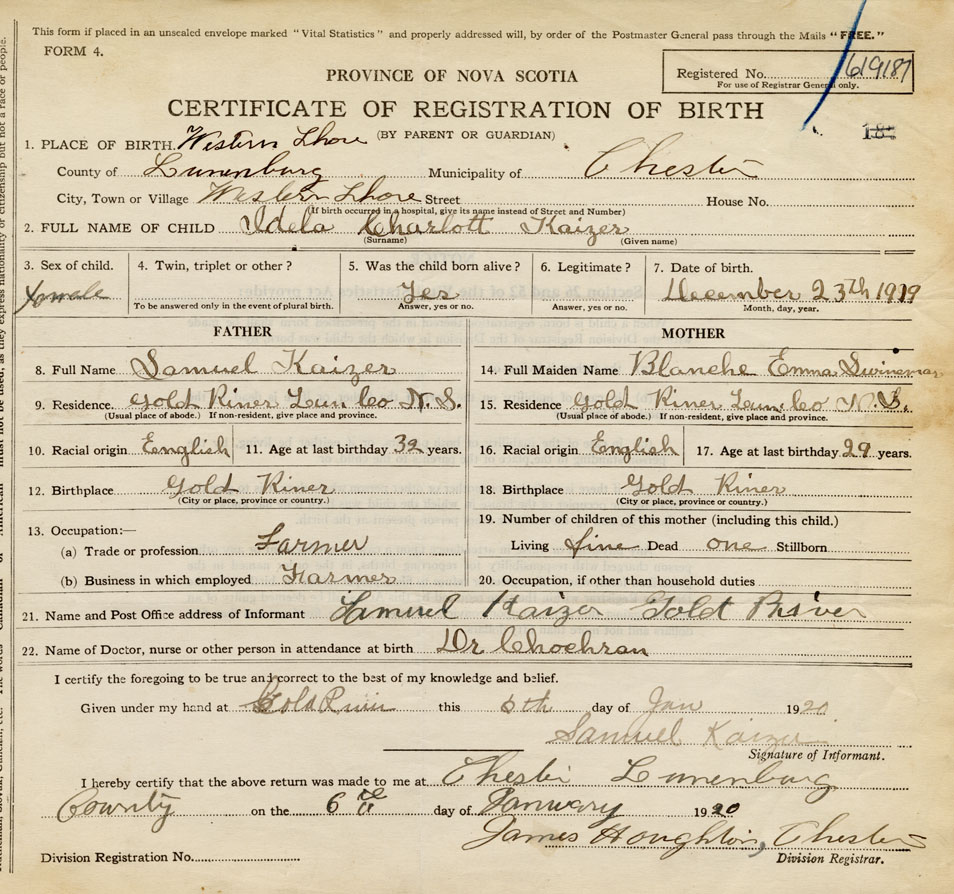 This form if placed in an unsealed envelope marked "Vital Statistics" and properly addressed will, by order of the Postmaster General pass through the Mails "FREE."
FORM 4.
PROVINCE OF NOVA SCOTIA
Registered No. 619187
For use of Registrar General only.
CERTIFICATE OF REGISTRATION OF BIRTH
(BY PARENT OR GUARDIAN)
1. PLACE OF BIRTH. Western Shore
County of Lunenburg Municipality of Chester
City, Town or Village Western Shore Street House No.
(If birth occurred in a hospital, give its name instead of Street and Number)
2. FULL NAME OF CHILD Idela Charlott Kaizer
(Surname) (Given name)
3. Sex of child. 4. Twin, triplet or other? 5. Was the child born alive? 6. Legitimate? 7. Date of birth.
Female Yes December 23th 1919
To be answered only in the event of plural birth. Answer, yes or no. Answer, yes or no. Month, day, year.
FATHER MOTHER
8. Full Name Samuel Kaizer 14. Full Maiden Name Blanche Emma
9. Residence. Gold River Lun. Co N.S. 15. Residence Gold River Lun. Co N.S.
(Usual place of abode.) If non-resident, give place and province. (Usual place of abode.) If non-resident, give place and province.
10. Racial origin English 11. Age at last birthday 32 years. 16. Racial origin English 17. Age at last birthday 29 years.
12. Birthplace Gold River 18. Birthplace Gold River
(City or place, province or country.) (City or place, province or country.)
13. Occupation:— 19. Number of children of this mother (including this child.)
(a) Trade or profession Farmer Living five Dead one Stillborn
(b) Business in which employed Farmer 20. Occupation, if other than household duties
21. Name and Post Office address of Informant Samuel Kaizer Gold River
22. Name of Doctor, nurse or other person in attendance at birth Dr Chochran
I certify the foregoing to be true and correct to the best of my knowledge and belief.
Given under my hand at Gold River this 5th day of Jan 1920
Samuel Kaizer
Signature of Informant.
I hereby certify that the above return was made to me at Chester Lunenburg
County on the 6 day of January 1920
James Houghton, Chester
Division Registration No. Division Registrar.